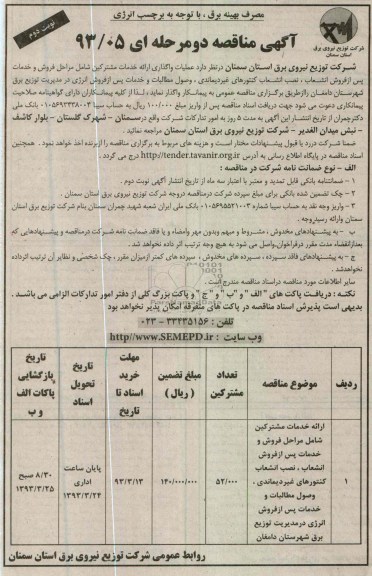 مصرف بهینه برق ، با توجه به برچسب انرژی
نوبت دوم
آگهی مناقصه دومرحله ای ۹۳/۰۵
شرکت توزیع نیروی برق
استان سمنان
شرکت توزیع نیروی برق استان سمنان درنظر دارد عملیات واگذاری ارائه خدمات مشترکین شامل مراحل فروش و خدمات
پس ازفروش انشعاب ، نصب انشعاب کنتورهای غیردیماندی ، وصول مطالبات و خدمات پس ازفروش انرژی در مدیریت توزیع برق
شهرستان دامغان رااز طریق برگزاری مناقصه عمومی به پیمانکار واگذار نماید ، لذا از کلیه پیمانکاران دارای گواهینامه صلاحیت
پیمانکاری دعوت می شود جهت دریافت اسناد مناقصه پس از واریز مبلغ ۱۰۰/۰۰۰ ریال به حساب سیبا ۰۱۰۵۶۹۳۳۳۸۰۰۳ بانک ملی
دکترچمران از تاریخ انتشار این آگهی به مدت ۵ روز به امور تدارکات شرکت واقع در سمنان - شهرک گلستان - بلوار کاشف
- نبش میدان الغدیر - شرکت توزیع نیروی برق استان سمنان مراجعه نمایند .
ضمنا شرکت دررد یا قبول پیشنهادات مختار است و هزینه های مربوط به برگزاری مناقصه را ازبرنده اخذ خواهد نمود . همچنین
اسناد مناقصه در پایگاه اطلاع رسانی به آدرس http://tender.tavanir.org.ir درج می گردد .
الف - نوع ضمانت نامه شرکت در مناقصه :
۱ - ضمانتنامه بانکی قابل تمدید و معتبر با اعتبار سه ماه از تاریخ انتشار آگهی نوبت دوم .
۲ - چک تضمین شده بانکی برای مبلغ سپرده شرکت درمناقصه دروجه شرکت توزیع نیروی برق استان سمنان .
۳ - واریز وجه نقد به حساب سیبا شماره ۰۱۰۵۶۹۵۵۲۱۰۰۳ بانک ملی ایران شعبه شهید چمران سمنان بنام شرکت توزیع برق استان
سمنان وارائه رسیدوجه .
ب - به پیشنهادهای مخدوش ، مشروط و مبهم وبدون مهر وامضاء و یا فاقد ضمانت نامه شرکت درمناقصه و پیشنهادهایی که
بعدازانقضاء مدت مقرر درفراخوان،واصل می شود به هیچ وجه ترتیب اثر داده نخواهد شد.
ج - به پیشنهادهای فاقد سپرده ، سپرده های مخدوش ، سپرده های کمتر ازمیزان مقرر ، چک شخصی و نظایر آن ترتیب اثرداده
نخواهدشد .
سایر اطلاعات مورد مناقصه دراسناد مناقصه مندرج است .
نکته : دریافت پاکت های " الف " و "ب " و " ج " و پاکت بزرگ کلی از دفتر امور تدارکات الزامی می باشد .
بدیهی است پذیرش اسناد مناقصه در پاکت های متفرقه امکان پذیر نخواهد بود
تلفن : ۳۳۲۳۵۱۵۶ - ۰۲۳
وب سایت : http//www.SEMEPD.ir
ردیف | موضوع مناقصه | تعداد مشترکین | مبلغ تضمین ( ریال ) | مهلت خرید اسناد تا تاریخ | تاریخ تحویل اسناد | تاریخ بازگشایی پاکات الف و ب
۱ | ارائه خدمات مشترکین شامل مراحل فروش و خدمات پس ازفروش انشعاب ، نصب انشعاب کنتورهای غیردیماندی ، وصول مطالبات و خدمات پس ازفروش انرژی درمدیریت توزیع برق شهرستان دامغان | ۵۲/۰۰۰ | ۱۴۰/۰۰۰/۰۰۰ | ۹۳/۳/۱۳ | پایان ساعت اداری ۱۳۹۳/۳/۲۴ | ۸/۳۰ صبح ۱۳۹۳/۳/۲۵
روابط عمومی شرکت توزیع نیروی برق استان سمنان